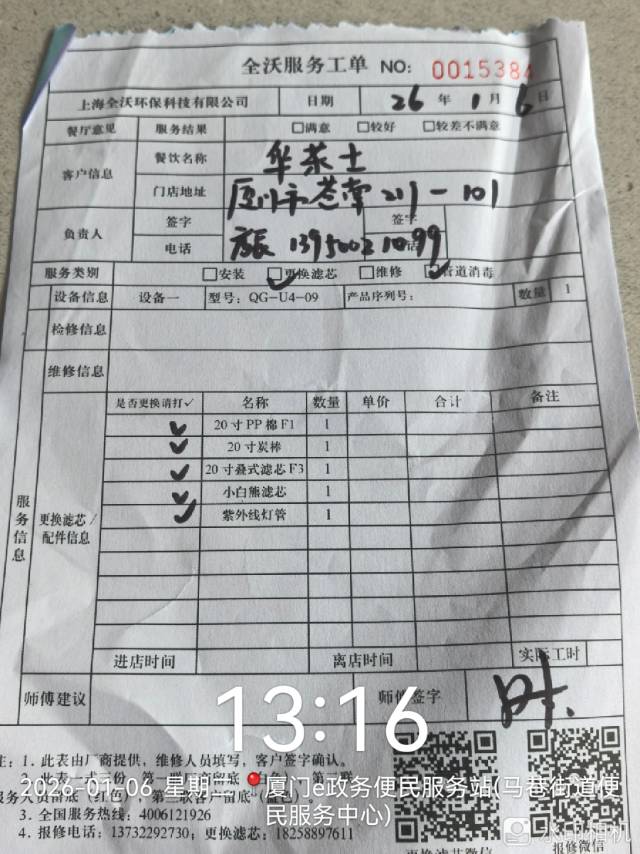 全沃服务工单 NO: 0015384
上海全沃环保科技有限公司 日期 26 年 1 月 6 日
餐厅意见 服务结果 □满意 □较好 □较差不满意
客户信息 餐饮名称 华莱士
门店地址 厦门市苍南211-101
负责人 签字 签字
电话 13950021099
服务类别 □安装 ☑更换滤芯 □维修 ☑管道消毒
设备信息 设备一 型号: QG-U4-09 产品序列号: 数量 1
检修信息
维修信息
服务信息
更换滤芯/配件信息
是否更换请打✓ 名称 数量 单价 合计 备注
✓ 20寸PP棉F1 1
✓ 20寸炭棒 1
✓ 20寸叠式滤芯F3 1
✓ 小白熊滤芯 1
✓ 紫外线灯管 1
进店时间 离店时间 实际工时
师傅建议 师傅签字
13:16
注: 1. 此表由厂商提供，维修人员填写，客户签字确认。
2. 此表一式三份，第一联厂商留底（白色），第二联
服务人员留底（红色），第三联客户留底（蓝色）。
3. 全国服务热线: 4006121926
4. 报修电话: 13732292730; 更换滤芯: 18258897611
2026-01-06 星期二 厦门e政务便民服务站(马巷街道便
民服务中心)
更换滤芯微信 报修微信
水印相机